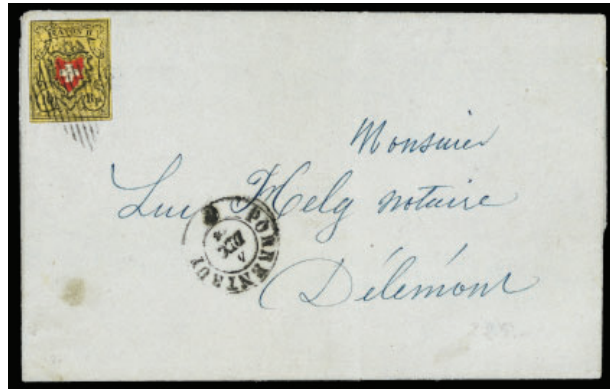 RAYON II
Monsieur
Luc Helg notaire
PORRENTRUY
DEC
Délémont